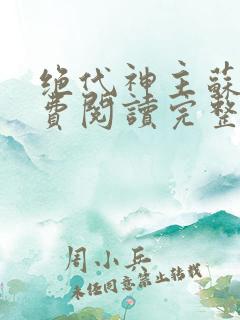 绝代神主蘇
費閱讀完整
周小兵
未經同意禁止轉載